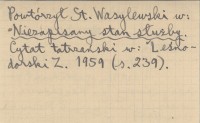 Powtórzył St. Wasylewski w:
"Niezapisany stan służby.
Cytat tatrzański w: "Leśno-
dorski Z. 1959 (s. 239).